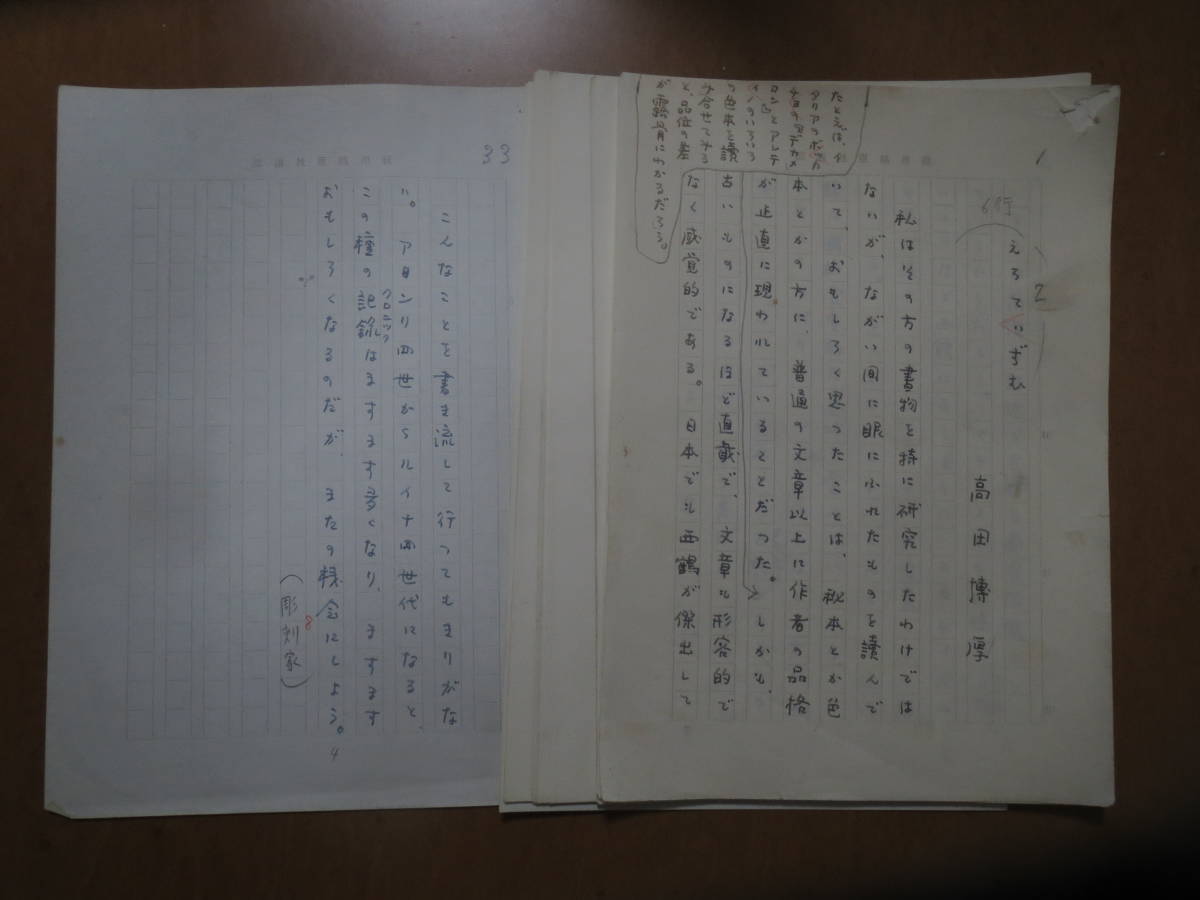 1
2
6行
えろていずむ
高田博厚
私はその方の書物を特に研究したわけでは
ないが、ながい間に眼にふれたものを讀んで
いて、おもしろく思つたことは、秘本とか色
本とかの方に、普通の文章以上に作者の品格
が正直に現われていることだつた。しかも、
古いものになるほど直截で、文章も形容的で
なく感覚的である。日本でも西鶴が傑出して
たとえば、イ
タリアのボッカ
チヨのデカメ
ロンとアンチ
のいろいろ
色本と讀
み合せてみる
と、品位の差
が露骨にわかるだろう。
33
こんなことを書き流して行つてもきりがな
い。アンリ四世からルイ十四世代になると、
この種の記録はますます多くなり、ますます
クロニック
おもしろくなるのだが、またの機会にしよう。
(彫刻家)
8
4